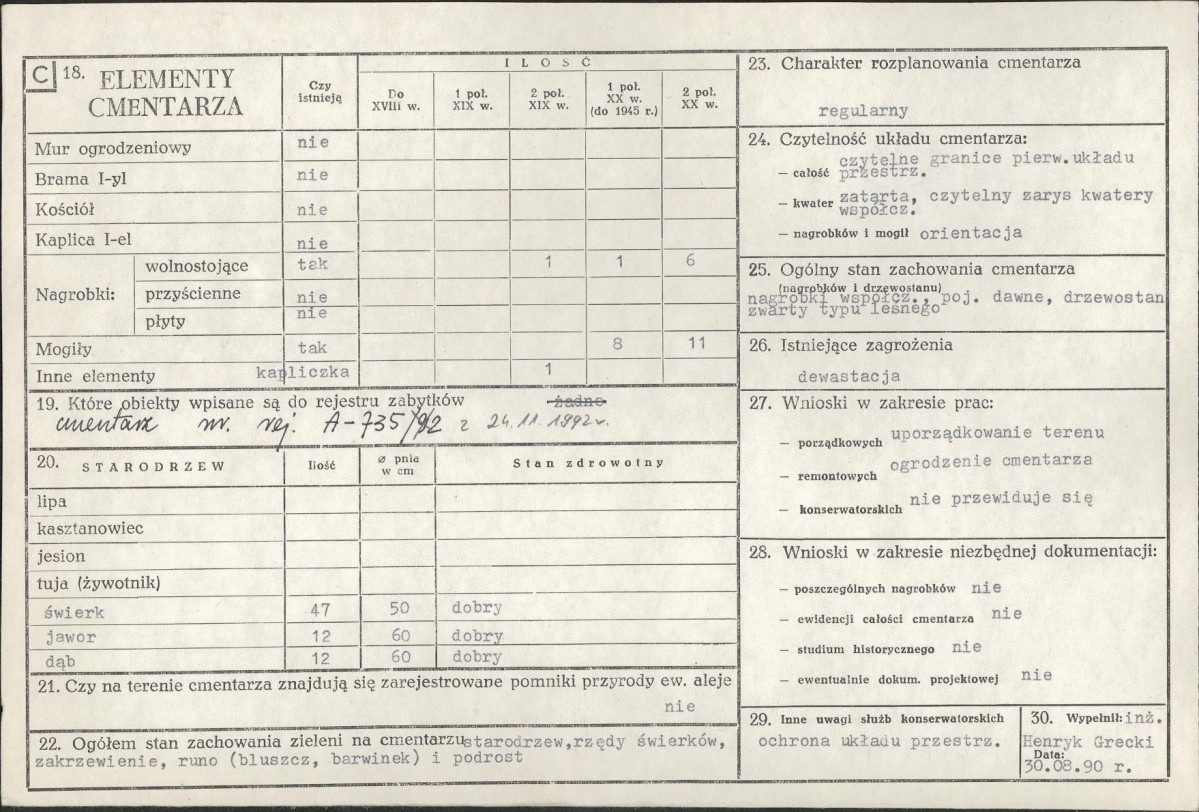 C 18. ELEMENTY CMENTARZA
Czy istnieją
ILOŚĆ
Do XVIII w.
1 poł. XIX w.
2 poł. XIX w.
1 poł. XX w. (do 1945 r.)
2 poł. XX w.
Mur ogrodzeniowy nie
Brama I-yl nie
Kościół nie
Kaplica I-el nie
Nagrobki: wolnostojące tak 1 1 6
przyścienne nie
płyty nie
Mogiły tak 8 11
Inne elementy kapliczka 1
19. Które obiekty wpisane są do rejestru zabytków żadne
cmentarz nr. rej. A-735/92 z 24.11.1992r.
20. STARODRZEW Ilość ø pnia w cm Stan zdrowotny
lipa
kasztanowiec
jesion
tuja (żywotnik)
świerk 47 50 dobry
jawor 12 60 dobry
dąb 12 60 dobry
21. Czy na terenie cmentarza znajdują się zarejestrowane pomniki przyrody ew. aleje
nie
22. Ogółem stan zachowania zieleni na cmentarzu starodrzew,rzędy świerków,
zakrzewienie, runo (bluszcz, barwinek) i podrost
23. Charakter rozplanowania cmentarza
regularny
24. Czytelność układu cmentarza:
— całość czytelne granice pierw.układu
przestrz.
— kwater zatarta, czytelny zarys kwatery
współcz.
— nagrobków i mogił orientacja
25. Ogólny stan zachowania cmentarza
(nagrobków i drzewostanu)
nagrobki współcz., poj. dawne, drzewostan
zwarty typu leśnego
26. Istniejące zagrożenia
dewastacja
27. Wnioski w zakresie prac:
— porządkowych uporządkowanie terenu
— remontowych ogrodzenie cmentarza
— konserwatorskich nie przewiduje się
28. Wnioski w zakresie niezbędnej dokumentacji:
— poszczególnych nagrobków nie
— ewidencji całości cmentarza nie
— studium historycznego nie
— ewentualnie dokum. projektowej nie
29. Inne uwagi służb konserwatorskich
ochrona układu przestrz.
30. Wypełnił: inż.
Henryk Grecki
Data:
30.08.90 r.